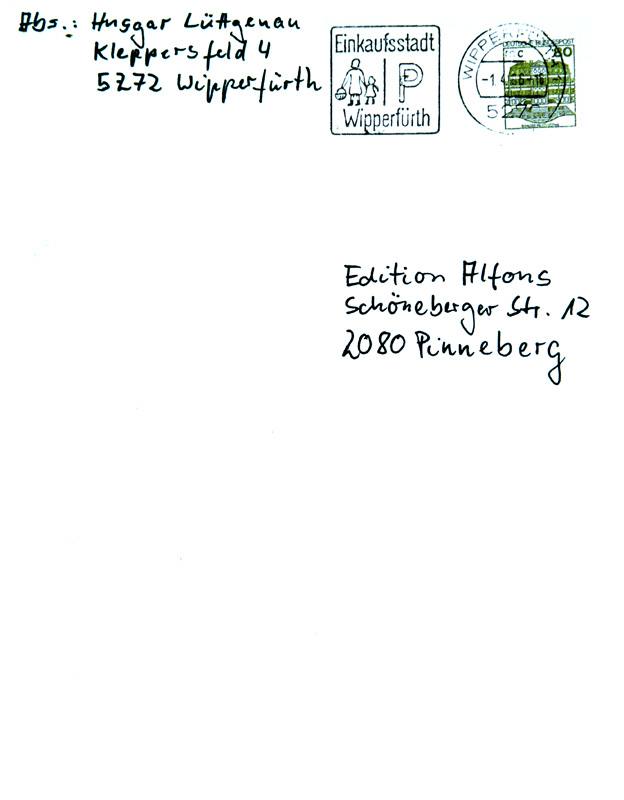 Abs.: Ansgar Lüttgenau
Kleppersfeld 4
5272 Wipperfürth
Einkaufsstadt
P
Wipperfürth
WIPPERF
-1.4.
527
c
DEUTSCHE BUNDESPOST
80
Edition Alfons
Schöneberger Str. 12
2080 Pinneberg